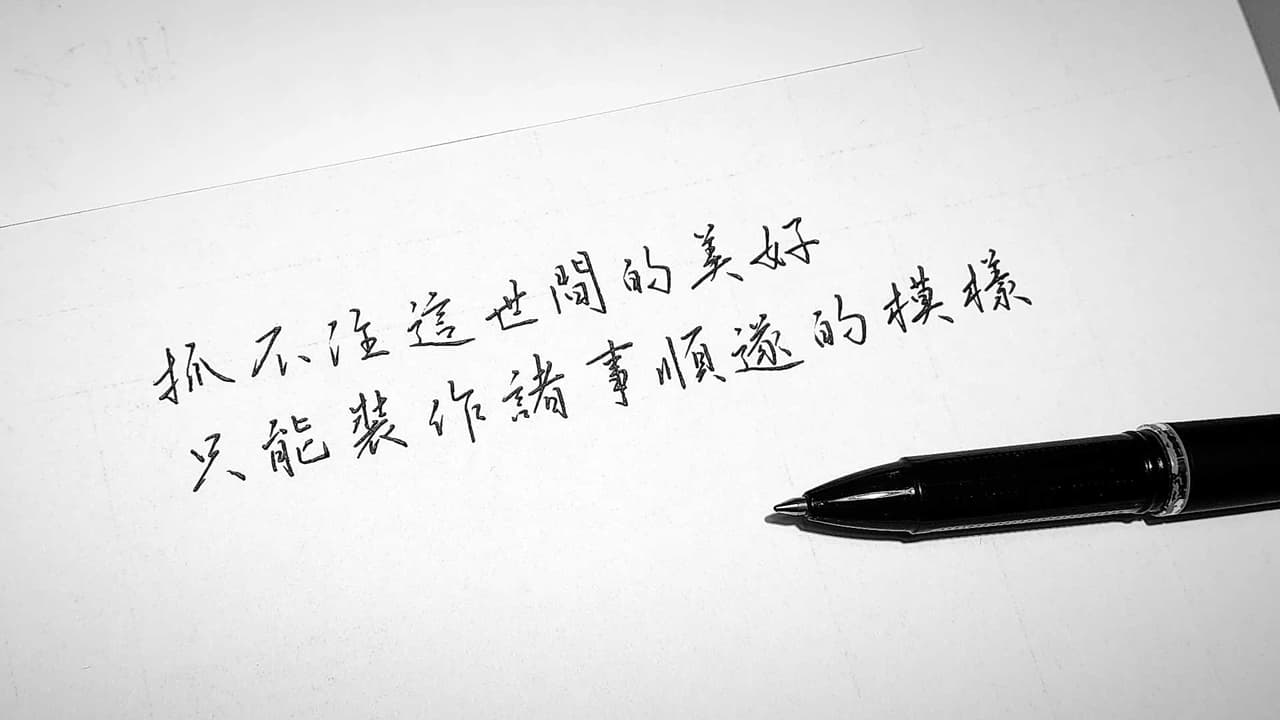 抓不住這世間的美好
只能裝作諸事順遂的模樣